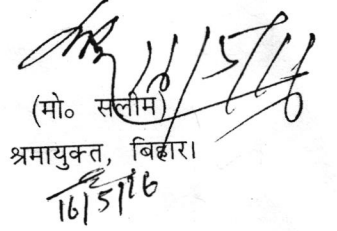 16/5/16
(मो० सलीम)
श्रमायुक्त, बिहार।
16/5/16